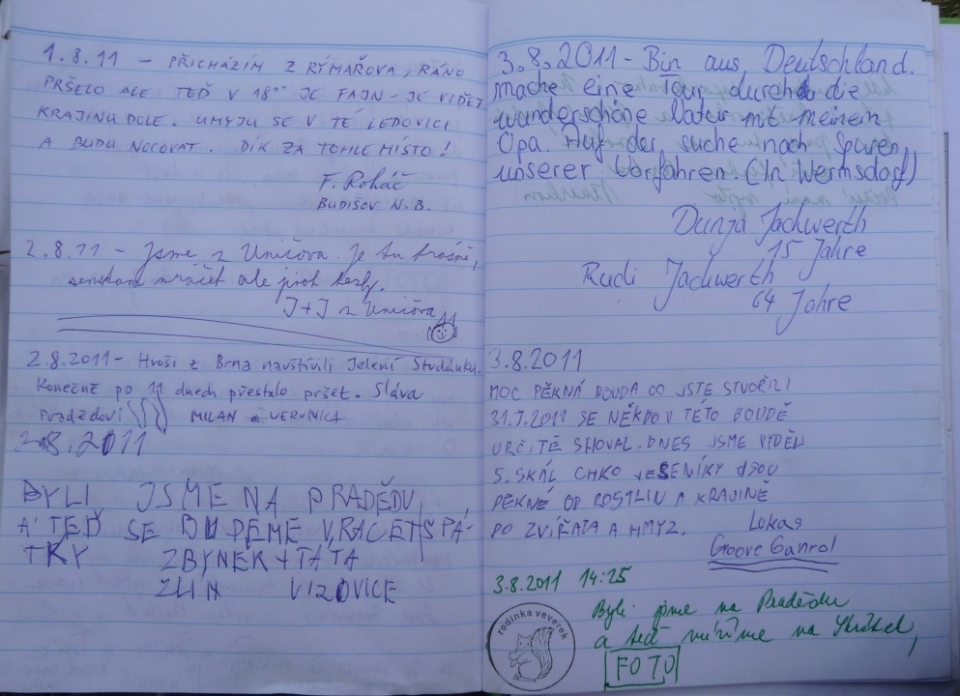 1.8.11 – PŘICHÁZÍM Z RÝMAŘOVA, RÁNO
PRŠELO ALE TEĎ V 18⁰⁰ JE FAJN – JE VIDĚT
KRAJINU DOLE. UMYJU SE V TÉ LEDOVICI
A BUDU NOCOVAT. DÍK ZA TOHLE MÍSTO!
F. Roháč
BUDIŠOV N.B.
2.8.11 – Jsme z Uničova. Je tu krásně,
mračet ale
J+J z Uničova
2.8.2011 – Hroši z Brna navštívili Jelení Studánku.
Konečně po 11 dnech přestalo pršet. Sláva
Pradědovi MILAN a VERUNICA
2.8.2011
BYLI JSME NA PRADĚDU
A TEĎ SE BUDEME VRACET SPÁ-
TKY ZBYNEK + TÁTA
ZLIN VIZOVICE
3.8.2011 – Bin aus Deutschland.
mache eine Tour durch die
wunderschöne Natur mit meinem
Opa. Auf der suche nach Spuren
unserer Vorfahren (In Wermsdorf)
Dunja Jackwerth
15 Jahre
Rudi Jackwerth
64 Jahre
3.8.2011
MOC PĚKNÁ BOUDA CO JSTE STVOŘILI
31.7.2011 SE NĚKDO V TÉTO BOUDĚ
URČITĚ SHOVAL. DNES JSME VYDĚLI
S. SKÁL CHKO JESENÍKY JSOU
PĚKNÉ OD ROSTLIN A KRAJINĚ
PO ZVÍŘATA A HMYZ. Lukas
Groove Ganrol
3.8.2011 14:25
rodinka veverek
Byli jsme na Pradědu
a teď míříme na
FOTO